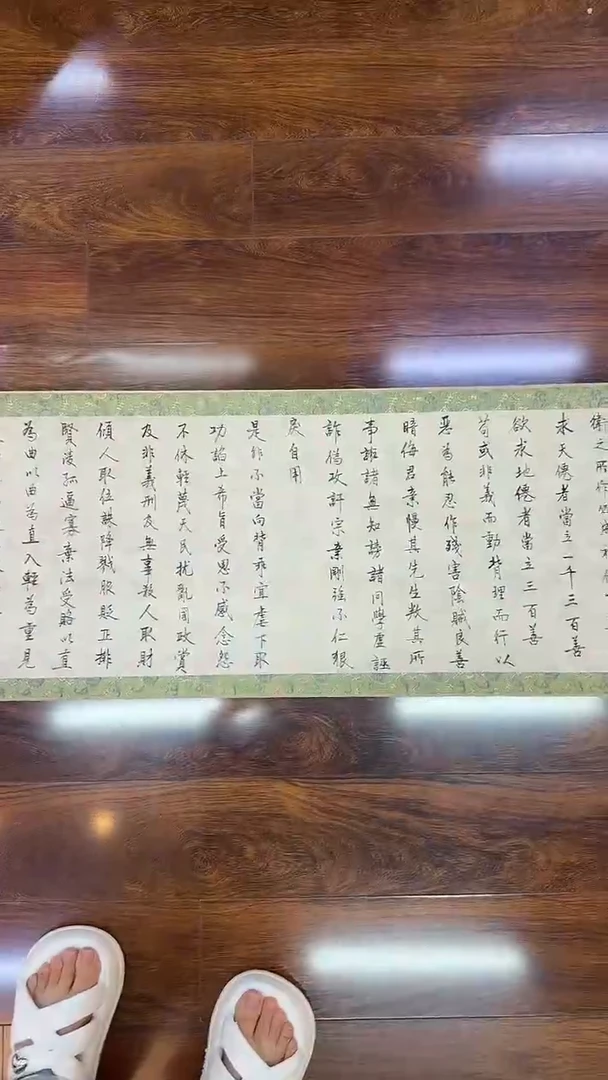 衛之所作
求天僊者當立一千三百善
欲求地僊者當立三百善
苟或非義而動背理而行以
惡為能忍作殘害陰賊良善
暗侮君親慢其先生叛其所
事誑諸無知謗諸同學虛誣
詐偽攻訐宗親剛強不仁狠
戾自用
是非不當向背乖宜虐下取
功諂上希旨受恩不感念怨
不休輕蔑天民擾亂國政賞
及非義刑及無辜殺人取財
傾人取位誅降戮服貶正排
賢凌孤逼寡棄法受賂以直
為曲以曲為直入輕為重見